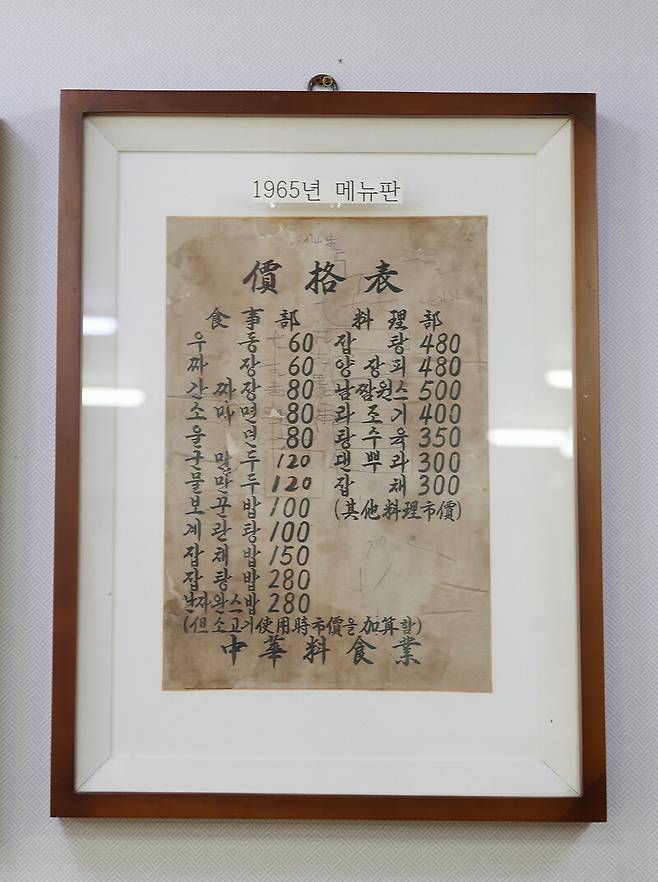 1965년 메뉴판
價格表
食事部
우동 60
짜장 60
간짜장 80
소마면 80
울면 80
군만두 120
물만두 120
보꾼밥 100
계란탕 100
잡채밥 150
잡탕밥 280
난자완스밥 280
(但 소고기使用時市價을加算함)
料理部
잡탕 480
양장피 480
남짬원스 500
라조기 400
탕수육 350
댄뿌라 300
잡채 300
(其他料理市價)
中華料食業